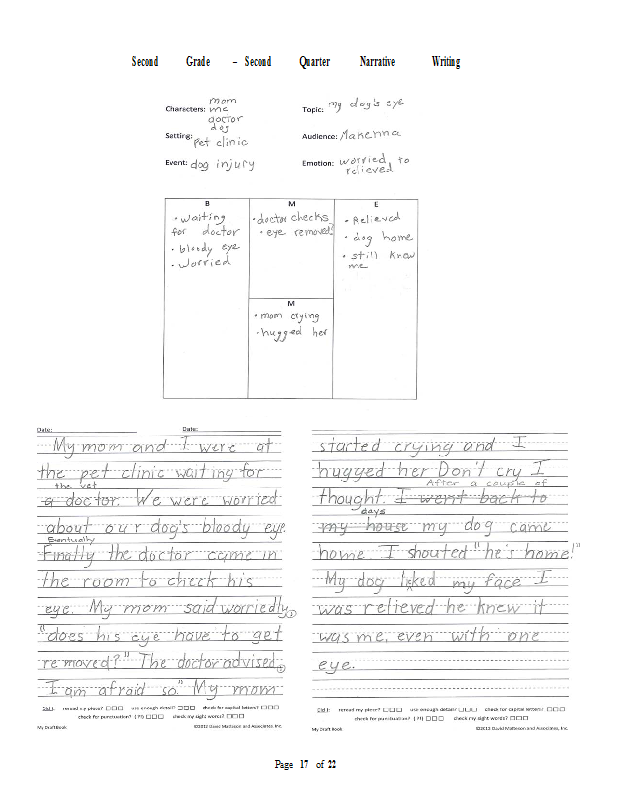 Second Grade – Second Quarter Narrative Writing
Characters: mom
me
doctor
dog
Setting: pet clinic
Event: dog injury
Topic: my dog's eye
Audience: Makenna
Emotion: worried to
relieved
B
• waiting
for doctor
• bloody eye
• worried
M
• doctor checks
• eye removed?
M
• mom crying
• hugged her
E
• Relieved
• dog home
• still knew
me
Date: Date:
My mom and I were at
the pet clinic waiting for
the vet
a doctor. We were worried
about our dog's bloody eye.
Eventually
Finally the doctor came in
the room to check his
eye. My mom said worriedly,
"does his eye have to get
removed?" The doctor advised,
I am afraid so." My mom
Did I: reread my piece? use enough detail? check for capital letters?
check for punctuation? (.?!) check my sight words?
My Draft Book ©2012 David Matteson and Associates, Inc.
started crying and I
hugged her Don't cry I
After a couple of
thought. I went back to
days
my house my dog came
home. I shouted "he's home!"
My dog licked my face I
was relieved he knew it
was me, even with one
eye.
Did I: reread my piece? use enough detail? check for capital letters?
check for punctuation? (.?!) check my sight words?
My Draft Book ©2012 David Matteson and Associates, Inc.
Page 17 of 22